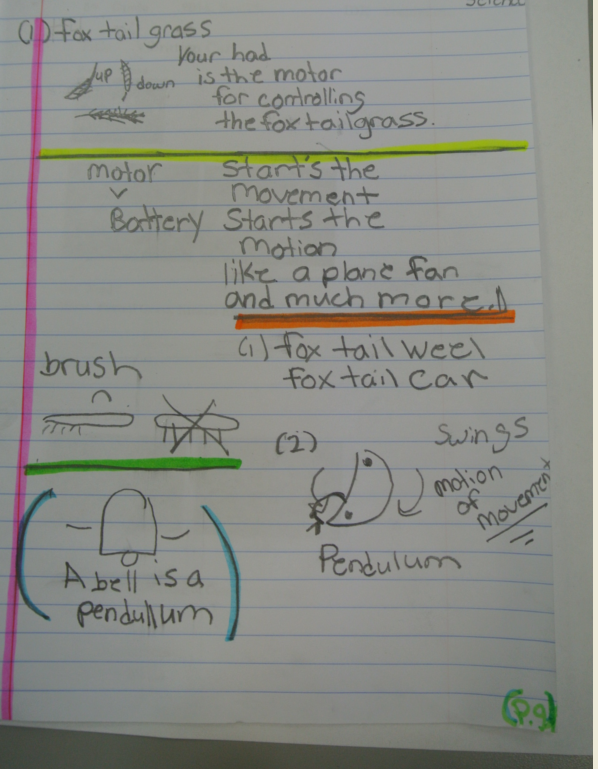 Science
(1) fox tail grass
Your had
up down is the motor
for controlling
the fox tail grass.
motor Start's the
movement
Battery Starts the
motion
like a plane fan
and much more.
(1) fox tail weel
fox tail car
brush
(2) Swings
motion
of
movement
Pendulum
A bell is a
pendullum
(P.9)